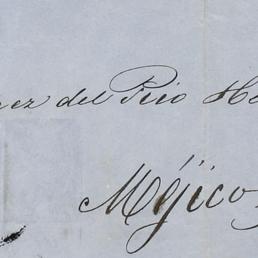 ez del Rio He
Méjico